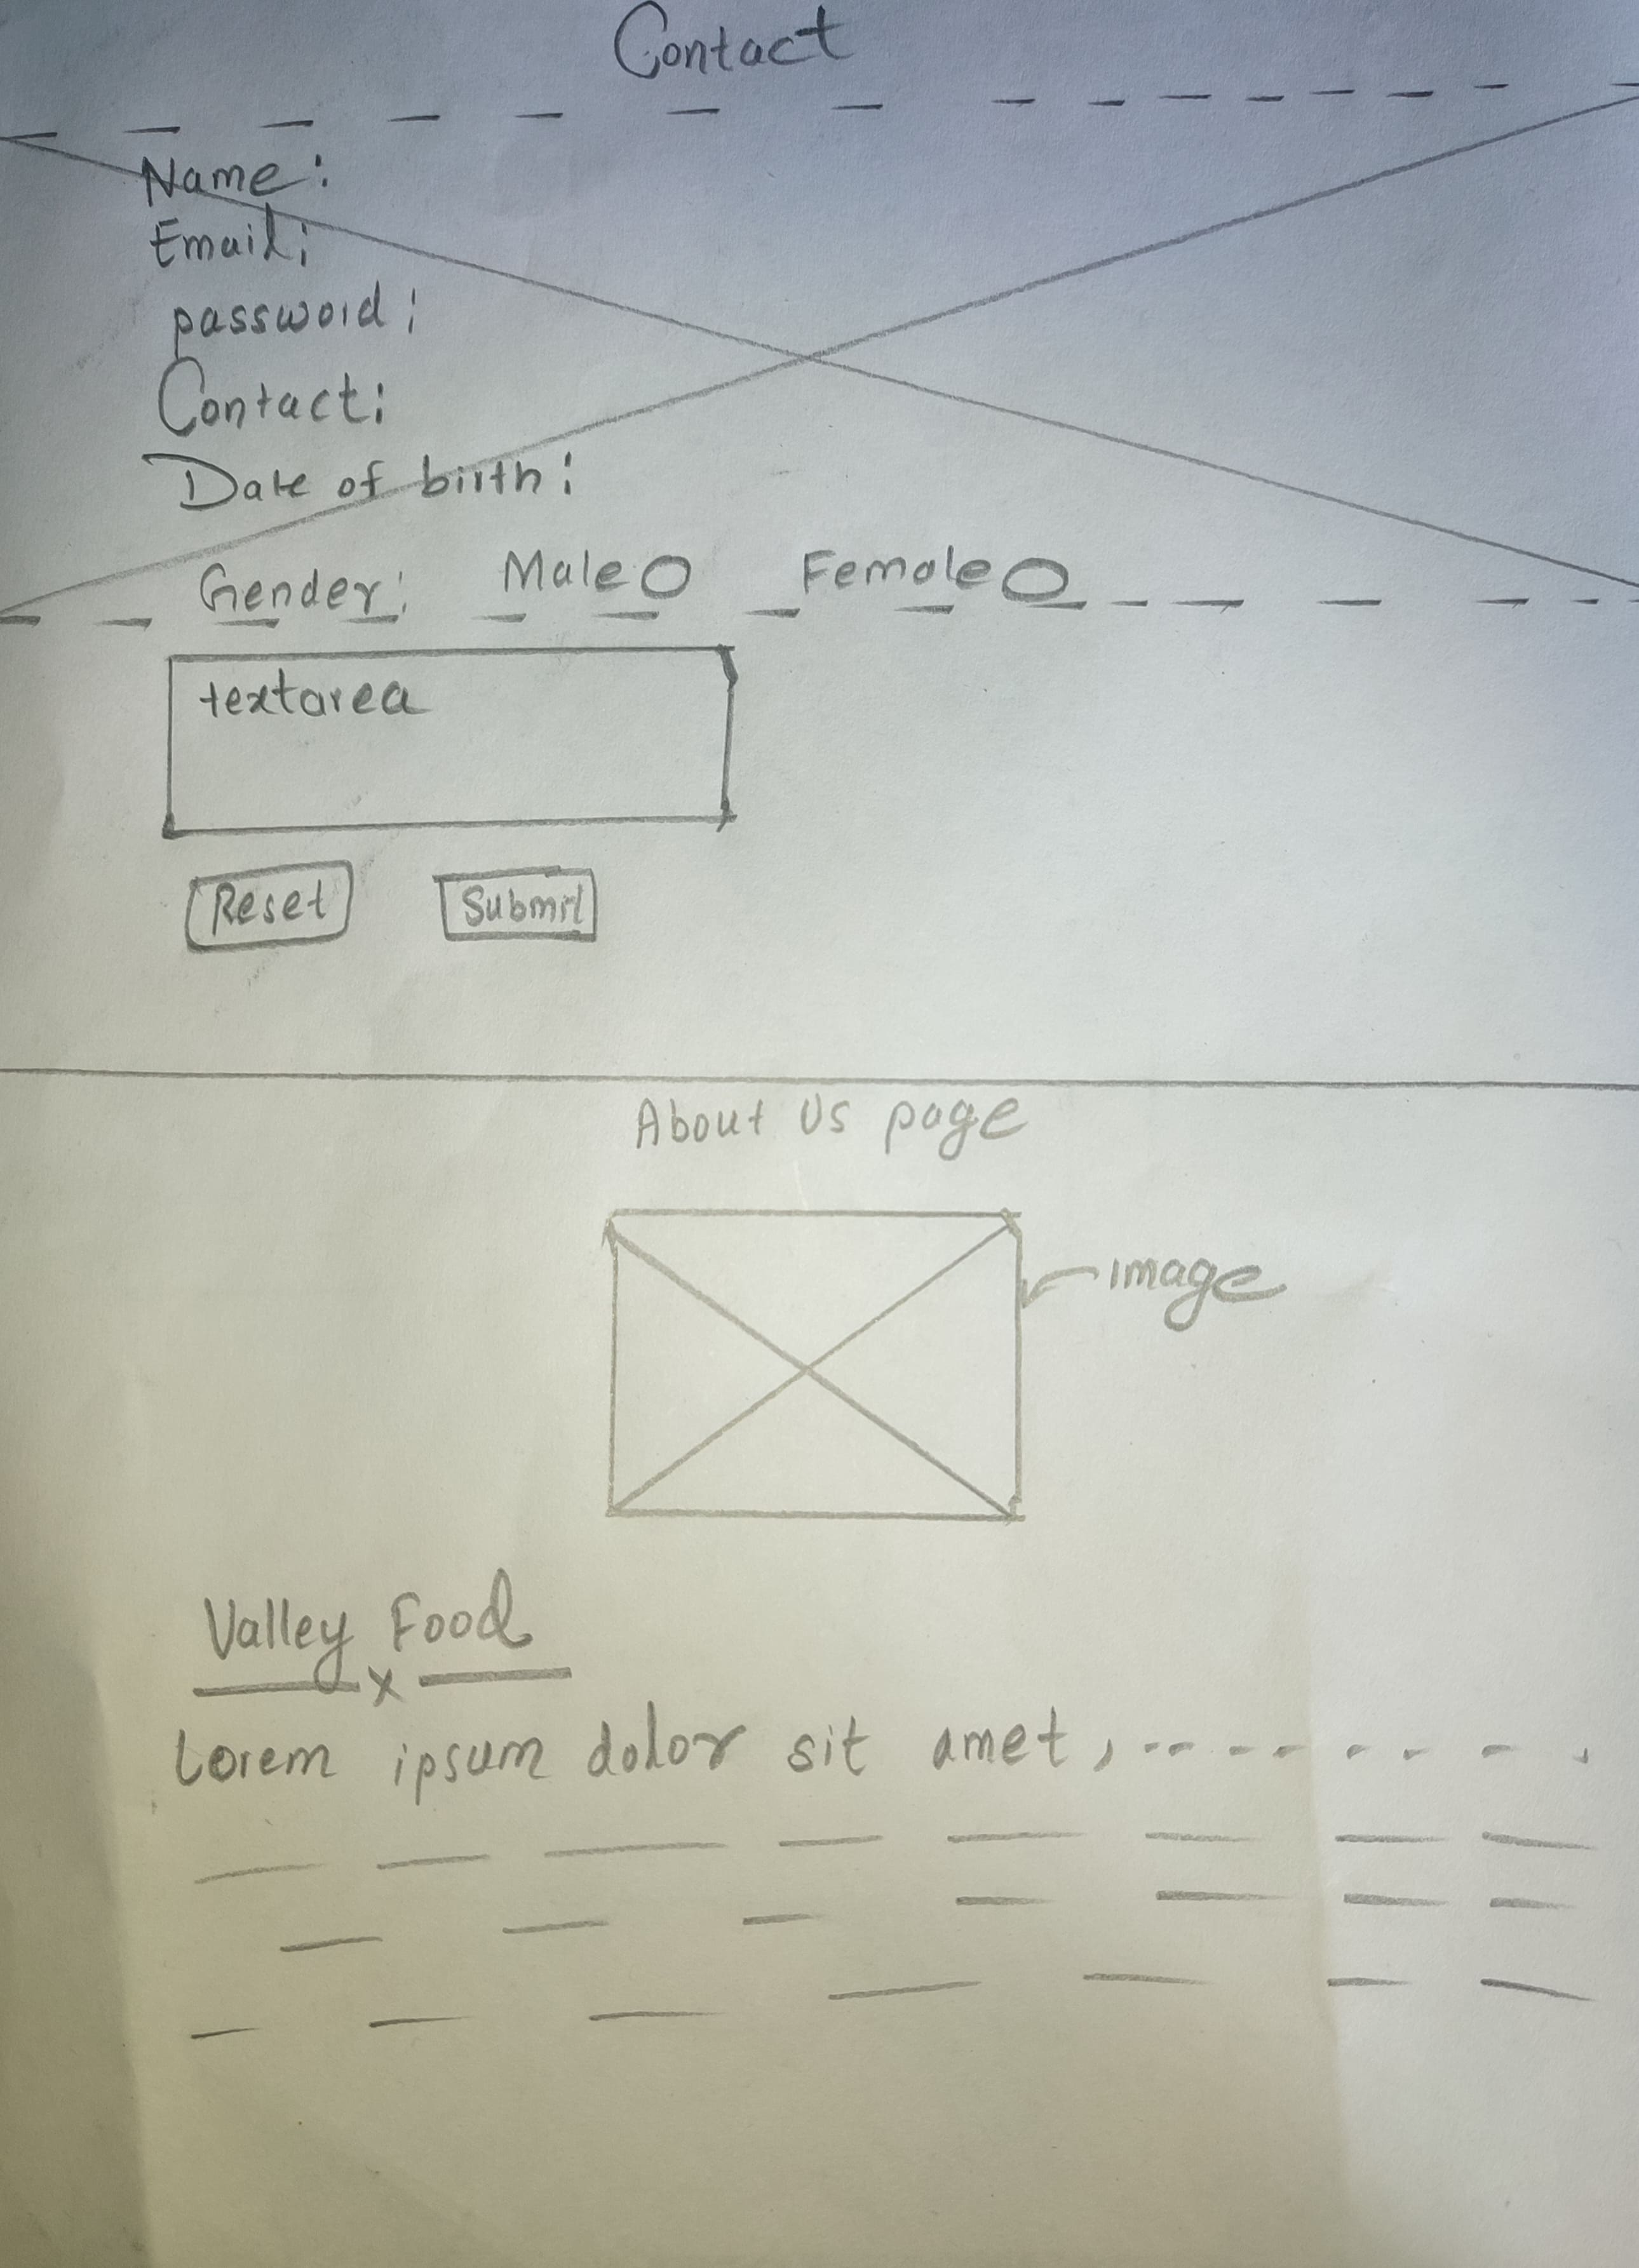 Contact
Name:
Email:
password:
Contact:
Date of birth:
Gender: Male Female
textarea
Reset Submit
About Us page
image
Valley Food
x
Lorem ipsum dolor sit amet,